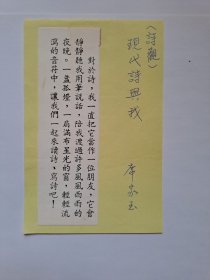 (詩觀)
現代詩與我
席家玉
對於詩，我一直把它當作一位朋友，它會
靜靜聽我用筆說話，陪我渡過許多風風雨雨的
夜晚。一盞孤燈，一扇滿布星光的窗，輕輕流
瀉的音符中，讓我們一起來讀詩，寫詩吧！